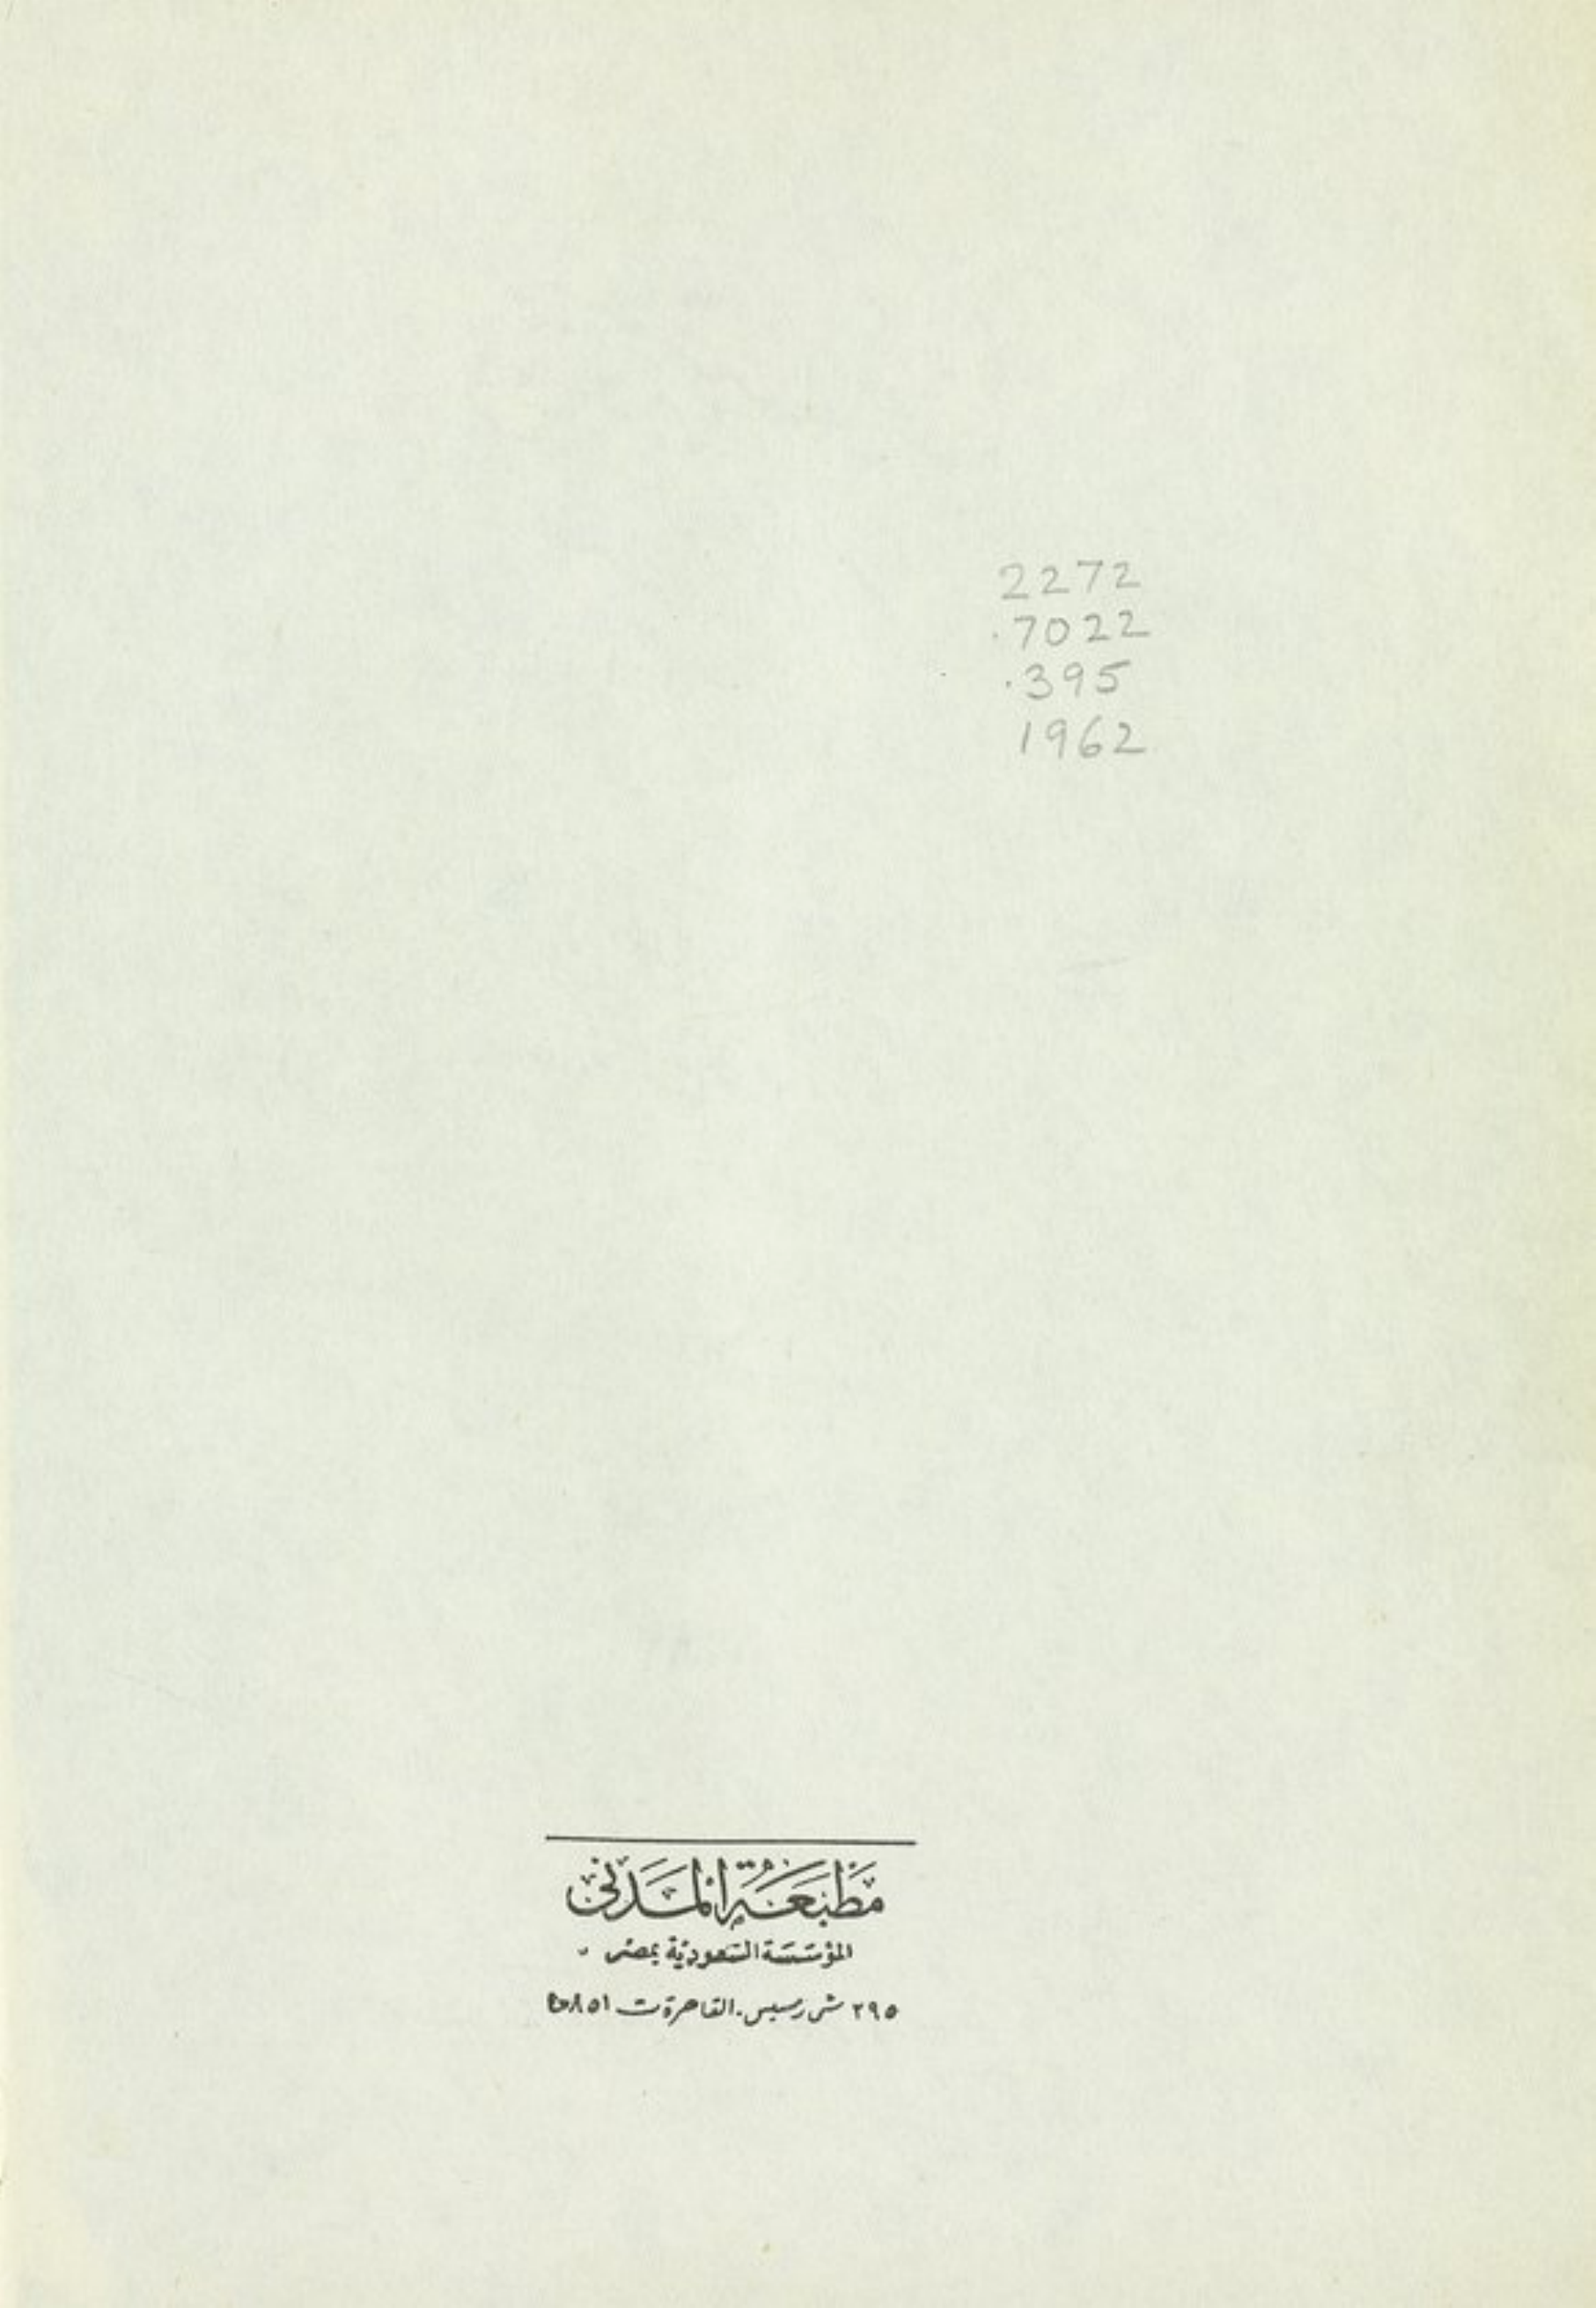 2272
.7022
.395
1962
مَطْبَعَةُ الْمَدَنِي
المؤسَسَة السَّعوديَّة بمصر
٢٩٥ ش رمسيس. القاهرة ت